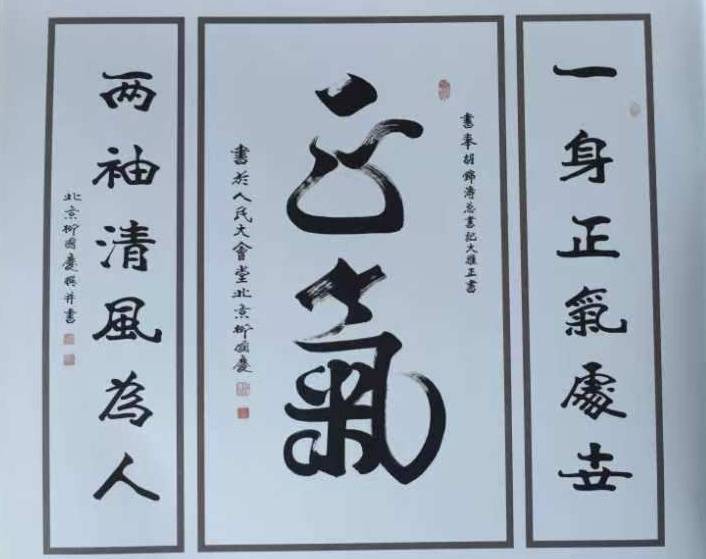 一身正氣處世
書奉胡錦濤总書記大雅正書
正氣
書於人民大會堂北京柳國慶
两袖清風為人
北京柳國慶撰并書